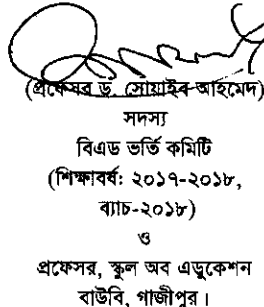 (প্রফেসর ড. সোয়াইব আহমেদ)
সদস্য
বিএড ভর্তি কমিটি
(শিক্ষাবর্ষ: ২০১৭-২০১৮,
ব্যাচ-২০১৮)
ও
প্রফেসর, স্কুল অব এডুকেশন
বাউবি, গাজীপুর।